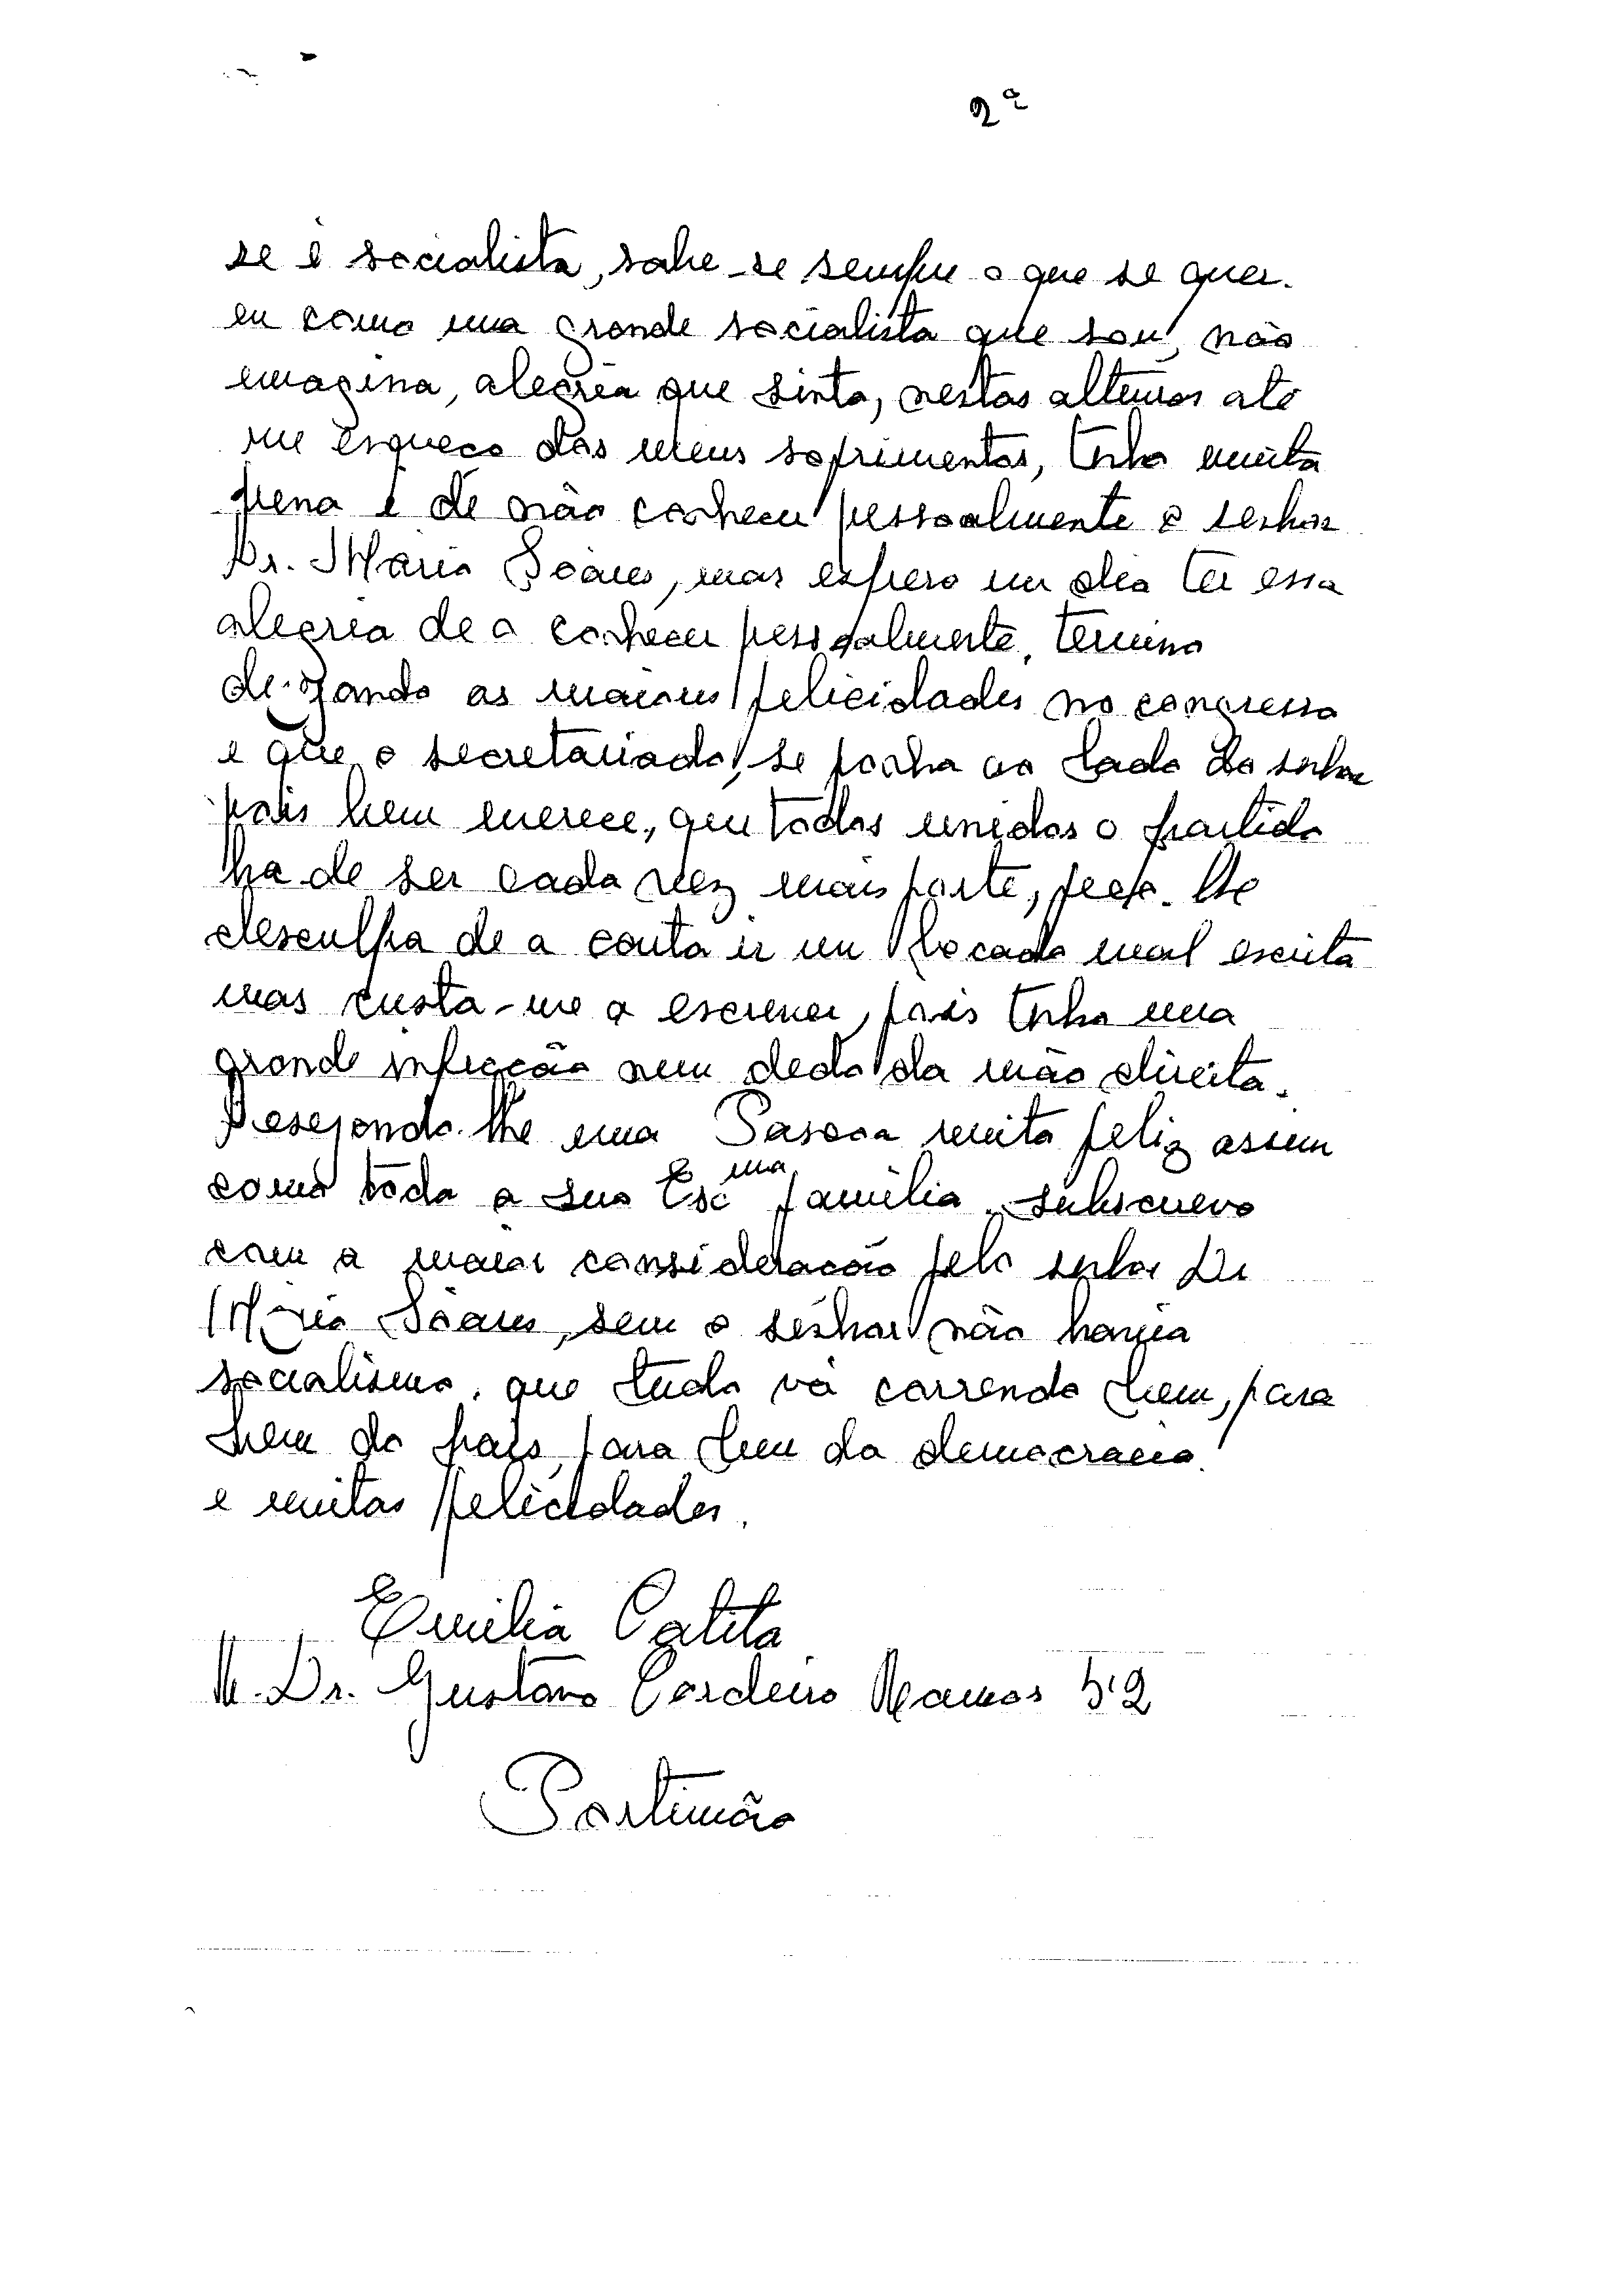 2ª
se é socialista, sabe-se sempre o que se quer.
eu como uma grande socialista que sou, não
emagina, alegria que sinto, nestas alturas até
me esqueço dos meus sofrimentos, tenho muita
pena é de não conhecer pessoalmente o senhor
Dr. Mário Soares, mas espero um dia ter essa
alegria de o conhecer pessoalmente, termino
dezejando as maiores felicidades no congresso
e que o secretariado, se ponha ao lado do senhor
pois bem merece, que todos unidos o partido
ha-de ser cada vez mais forte, peço-lhe
desculpa de a carta ir um bocado mal escrita
mas custa-me a escrever, pois tenho uma
grande infecção num dedo da mão direita.
Desejando-lhe uma Pascoa muito feliz assim
como toda a sua Esc ma familia. subscrevo
com a maior consideracão pelo senhor Dr
Mário Soares, sem o senhor não havia
socialismo. que tudo vá correndo bem, para
bem do país, para bem da democracia.
e muitas felicidades.
Emilia Catita
R. Dr. Gustavo Cordeiro Ramos 52
Portimão